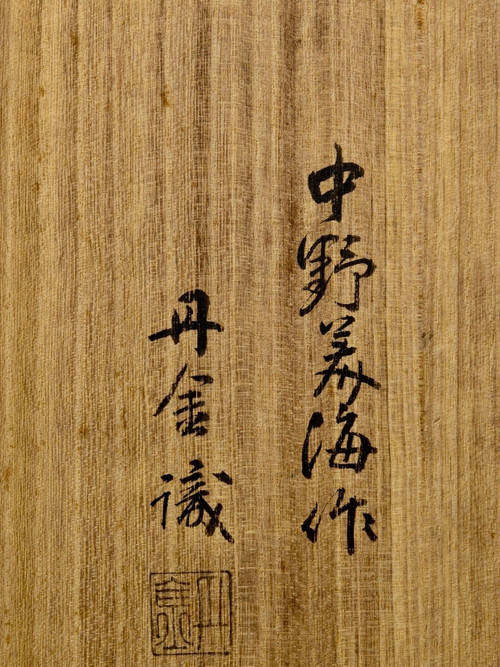 中野美海作
丹金識